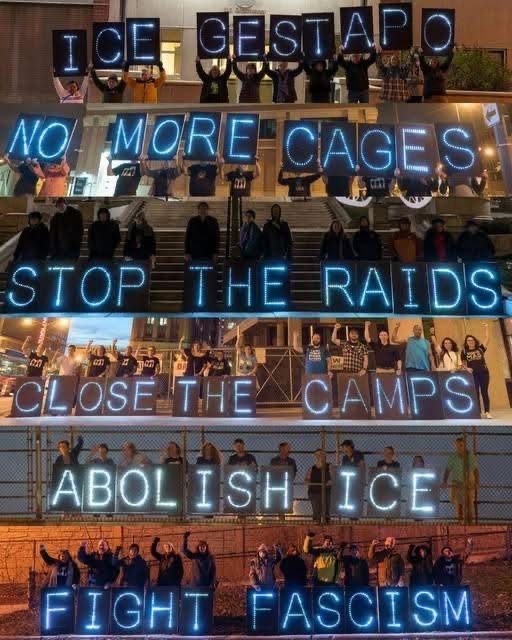 ICE GESTAPO
NO MORE CAGES
STOP THE RAIDS
CLOSE THE CAMPS
ABOLISH ICE
FIGHT FASCISM